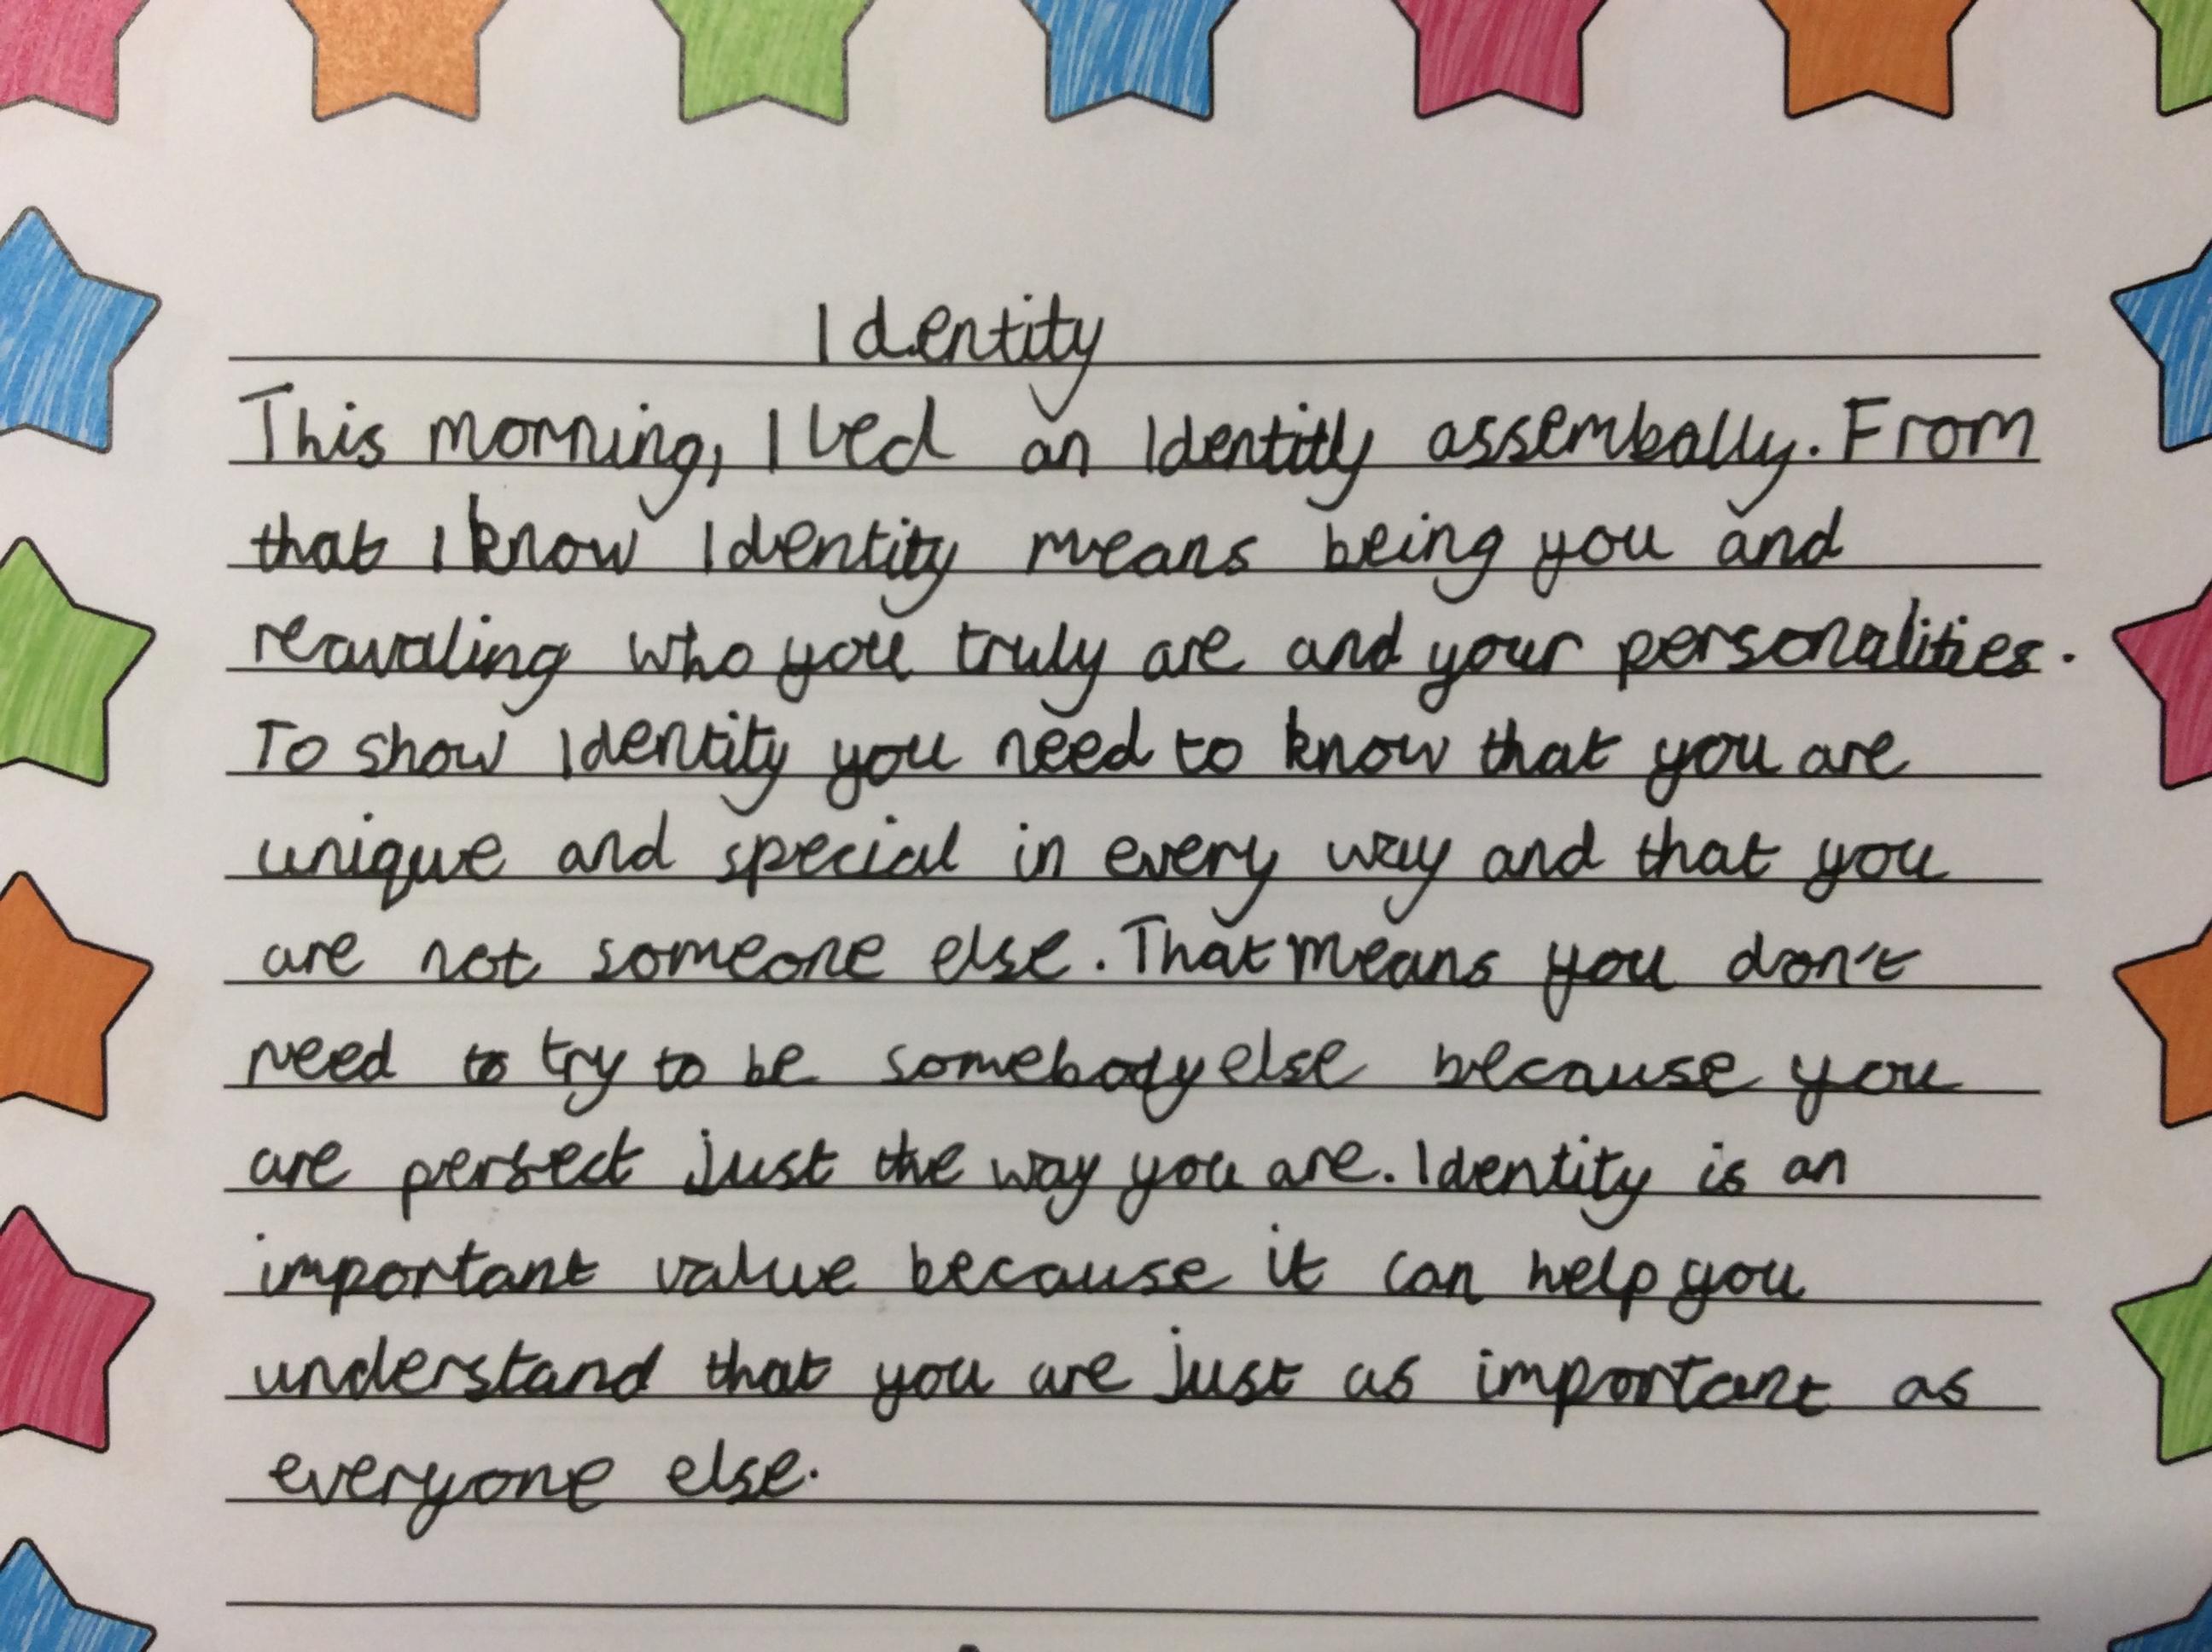 Identity
This morning, I led an Identitly assembally. From
that I know Identity means being you and
reavaling who you truly are and your personalities.
To show Identity you need to know that you are
unique and special in every way and that you
are not someone else. That means you don't
need to try to be somebody else because you
are perfect just the way you are. Identity is an
important value because it can help you
understand that you are just as important as
everyone else.